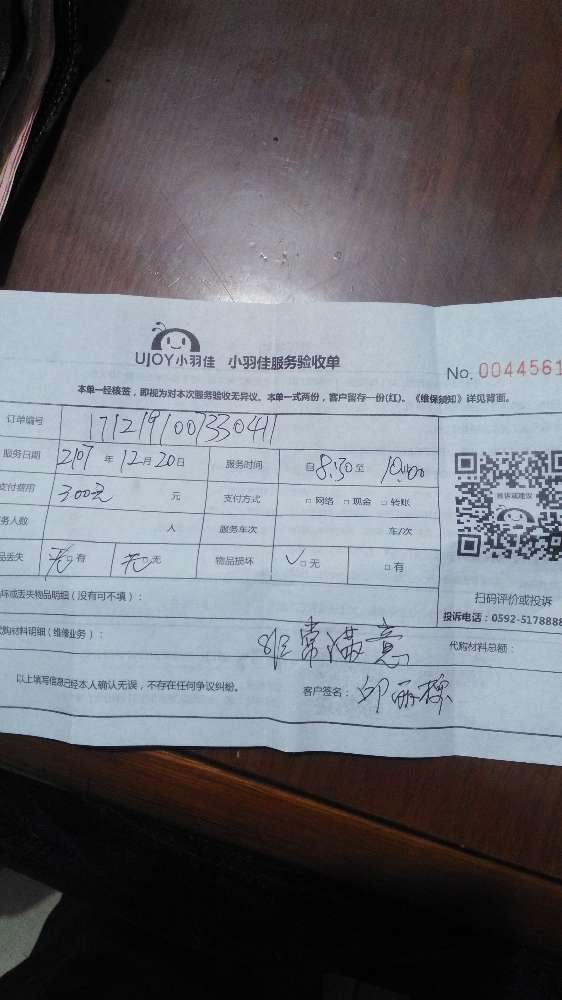 UJOY小羽佳 小羽佳服务验收单
No. 0044561
本单一经核签，即视为对本次服务验收无异议、本单一式两份，客户留存一份(红)。《维保须知》详见背面。
订单编号 1712191007330411
服务日期 2107 年 12月20日 服务时间 自8:30至 10:00
支付费用 300元 元 支付方式 □网络 □现金 □转账
务人数 人 服务车次 车/次
品丢失 无□有 无□无 物品损坏 ✓□无 □有
投诉或建议
扫码评价或投诉
投诉电话：0592-5178888
坏或丢失物品明细（没有可不填）：
代购材料明细（维修业务）： 代购材料总额：
非常满意
以上填写信息已经本人确认无误，不存在任何争议纠纷。 客户签名： 邱丽